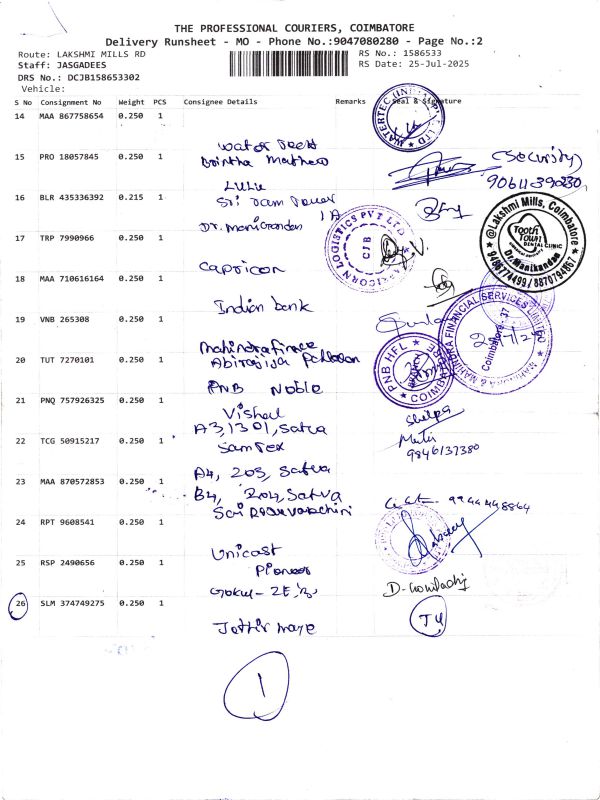 THE PROFESSIONAL COURIERS, COIMBATORE
Delivery Runsheet - MO - Phone No.:9047080280 - Page No.:2
Route: LAKSHMI MILLS RD
RS No.: 1586533
Staff: JASGADEES
RS Date: 25-Jul-2025
DRS No.: DCJB158653302
Vehicle:
S No Consignment No Weight PCS Consignee Details Remarks Seal & Signature
14 MAA 867758654 0.250 1
15 PRO 18057845 0.250 1
Brintha Mathew
(Security)
LULU
16 BLR 435336392 0.215 1
Sri Ram Tower
1A
Dr. Manikandan
17 TRP 7990966 0.250 1
@Lakshmi Mills, Coimbatore
Tooth Town
DENTAL CLINIC
Dr.Manikandan
9486774499 / 8870794667
LOGISTICS PVT LTD
CJB
Capricon
18 MAA 710616164 0.250 1
Indian bank
19 VNB 265308 0.250 1
Mahindra finance
MAHINDRA & MAHINDRA FINANCIAL SERVICES LIMITED
Coimbatore - 37
20 TUT 7270101 0.250 1
PNB Noble
PNB HFL
COIMBATORE
21 PNQ 757926325 0.250 1
Vishal
A3, 1301, Satva
Shilpa
22 TCG 50915217 0.250 1
Samtex
9846137380
A4, 203, Satva
23 MAA 870572853 0.250 1
B4, 204, Satva
9944448864
24 RPT 9608541 0.250 1
Unicast
25 RSP 2490656 0.250 1
Pioneer
26 SLM 374749275 0.250 1
1